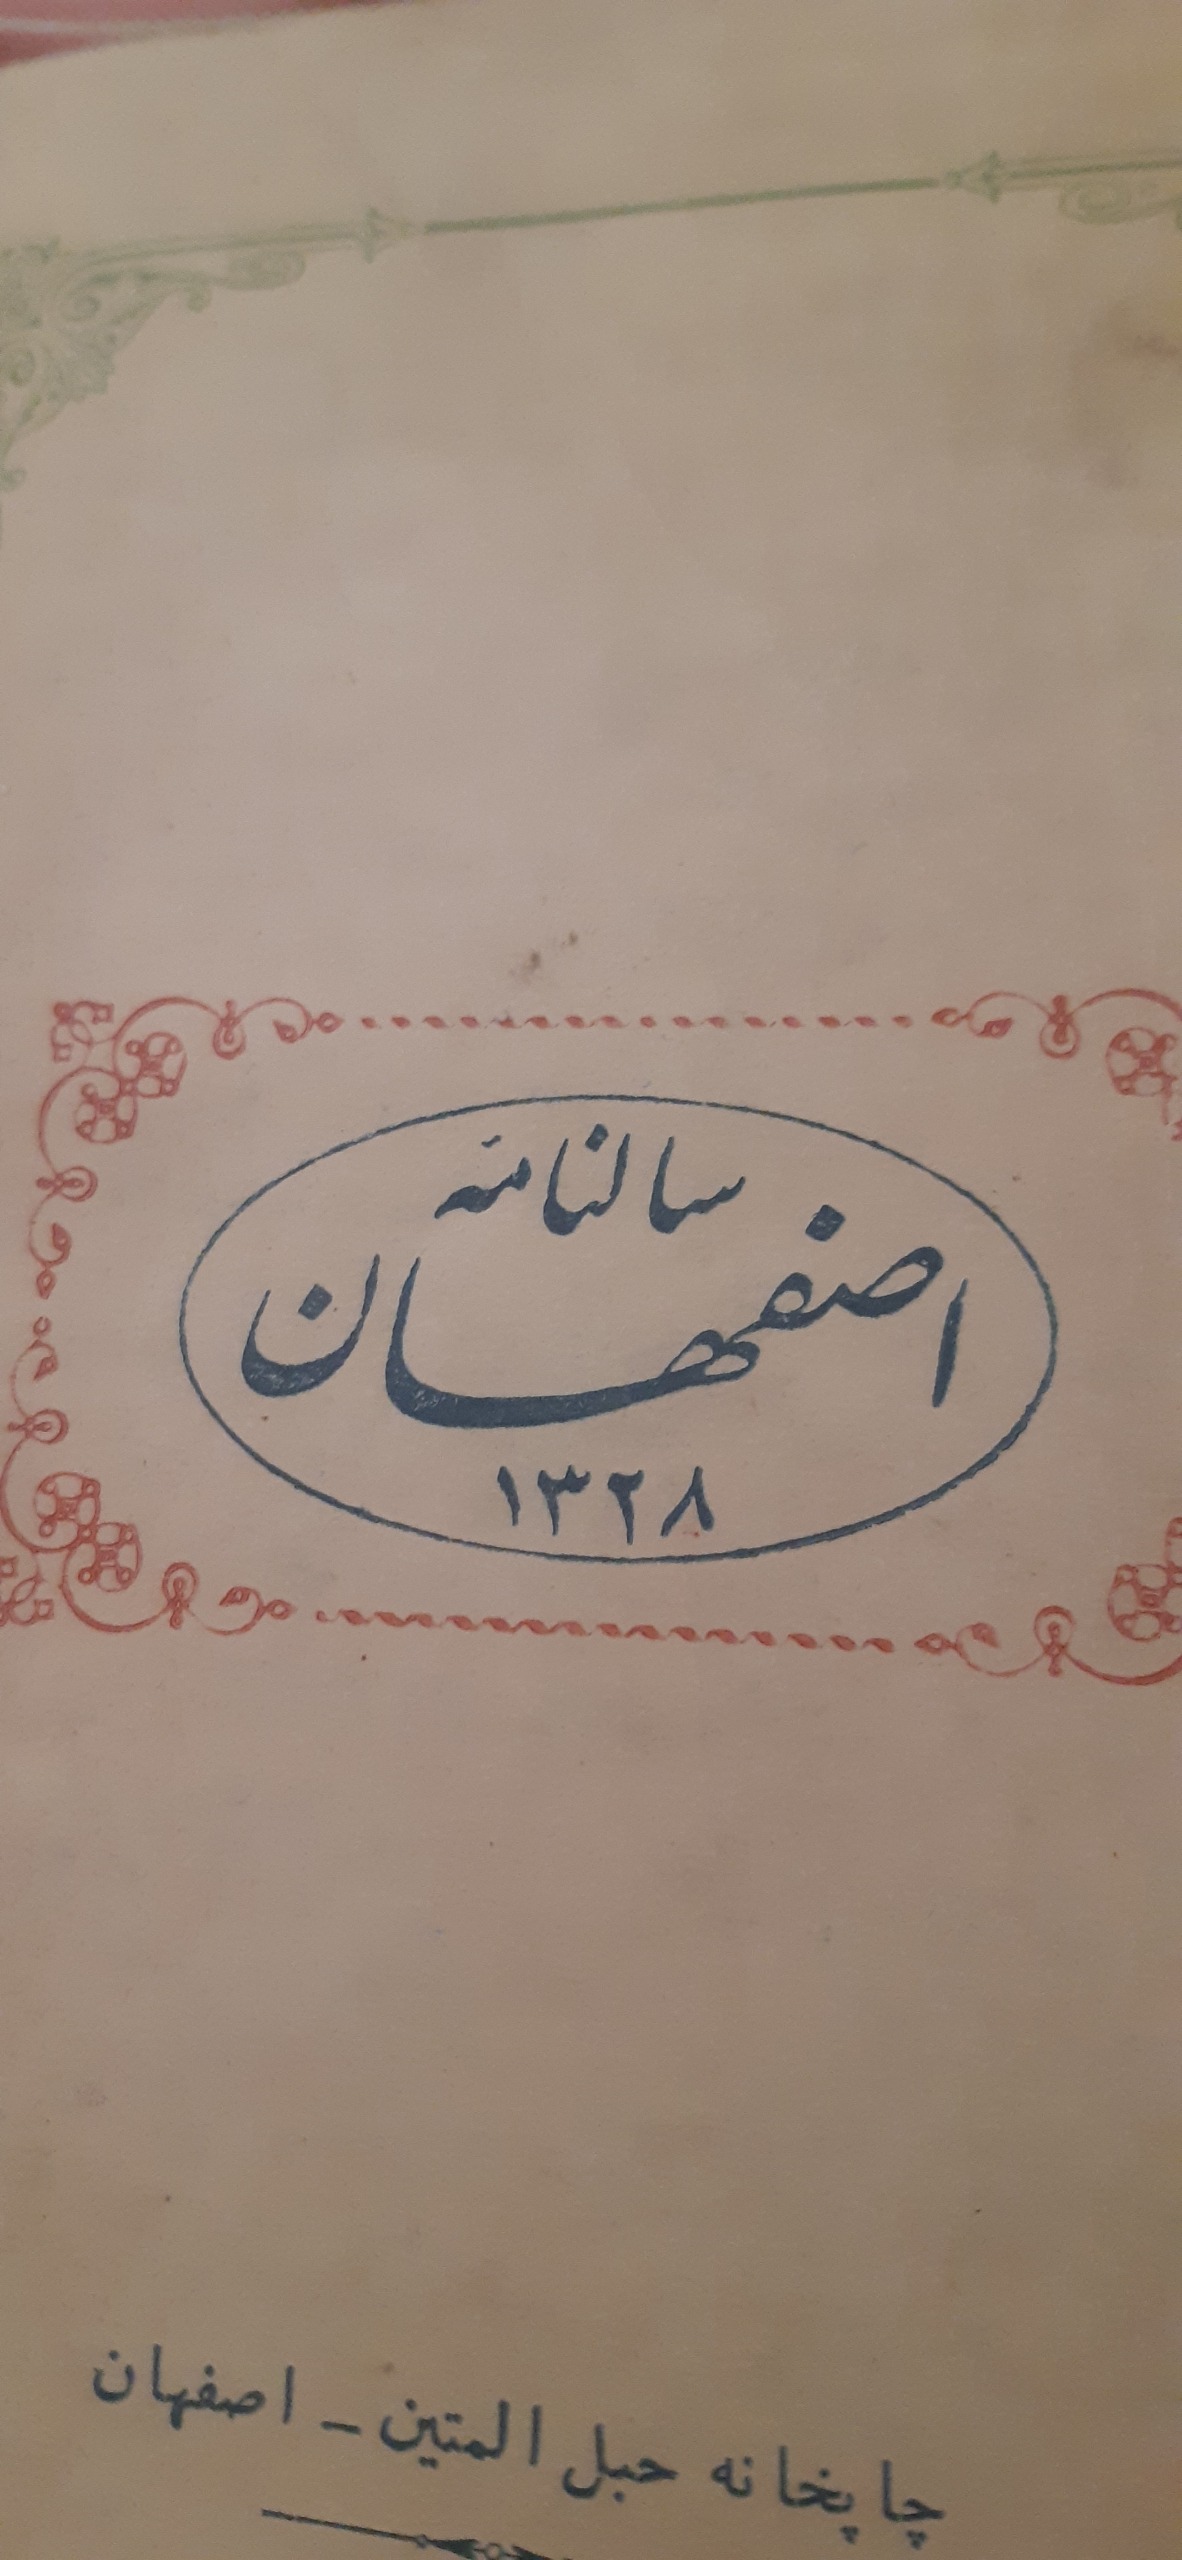 سالنامه
اصفهان
۱۳۲۸
چاپخانه حبل المتین - اصفهان